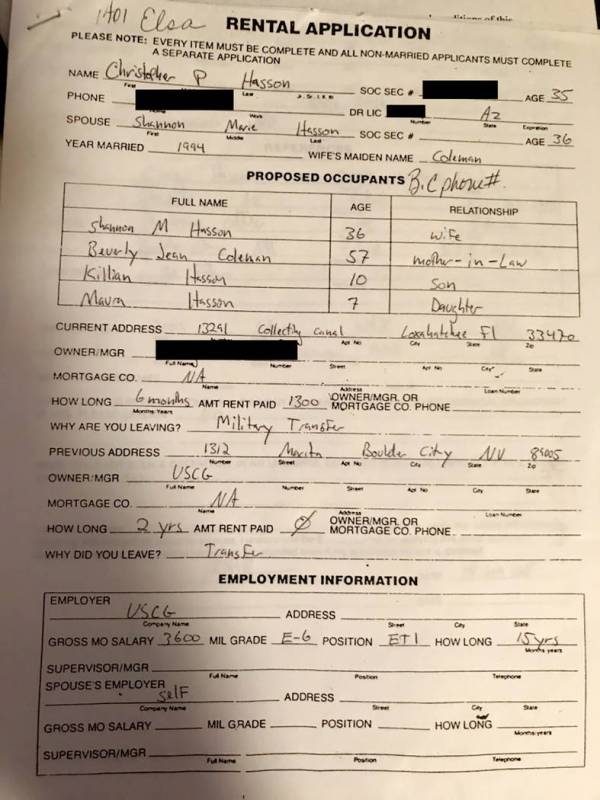 1401 Elsa
RENTAL APPLICATION
PLEASE NOTE: EVERY ITEM MUST BE COMPLETE AND ALL NON-MARRIED APPLICANTS MUST COMPLETE
A SEPARATE APPLICATION
NAME Christopher P Hasson SOC SEC # AGE 35
First Last
PHONE DR LIC Az
Home Work Number State Expiration
SPOUSE Shannon Marie Hasson SOC SEC # AGE 36
First Middle Last
YEAR MARRIED 1994 WIFE'S MAIDEN NAME Coleman
PROPOSED OCCUPANTS B.C phone#.
FULL NAME AGE RELATIONSHIP
Shannon M Hasson 36 wife
Beverly Jean Coleman 57 mother-in-Law
Killian Hasson 10 Son
Maura Hasson 7 Daughter
CURRENT ADDRESS 13291 Collecting Canal Loxahatchee Fl 33470
Apt No City State Zip
OWNER/MGR
Full Name Number Street Apt No City State
MORTGAGE CO. NA
Name Address Loan Number
HOW LONG 6 months AMT RENT PAID 1300 OWNER/MGR. OR
MORTGAGE CO. PHONE
Months Years
WHY ARE YOU LEAVING? Military Transfer
PREVIOUS ADDRESS 1312 Marita Boulder City NV 89005
Number Street Apt No City State Zip
OWNER/MGR USCG
Full Name Number Street Apt No City State
MORTGAGE CO. NA
Name Address Loan Number
HOW LONG 2 yrs AMT RENT PAID Ø OWNER/MGR. OR
MORTGAGE CO. PHONE
WHY DID YOU LEAVE? Transfer
EMPLOYMENT INFORMATION
EMPLOYER USCG ADDRESS
Company Name Street City State
GROSS MO SALARY 3600 MIL GRADE E-6 POSITION ET1 HOW LONG 15yrs
Months years
SUPERVISOR/MGR
Full Name Position Telephone
SPOUSE'S EMPLOYER self ADDRESS
Company Name Street City State
GROSS MO SALARY MIL GRADE POSITION HOW LONG
Months/years
SUPERVISOR/MGR
Full Name Position Telephone